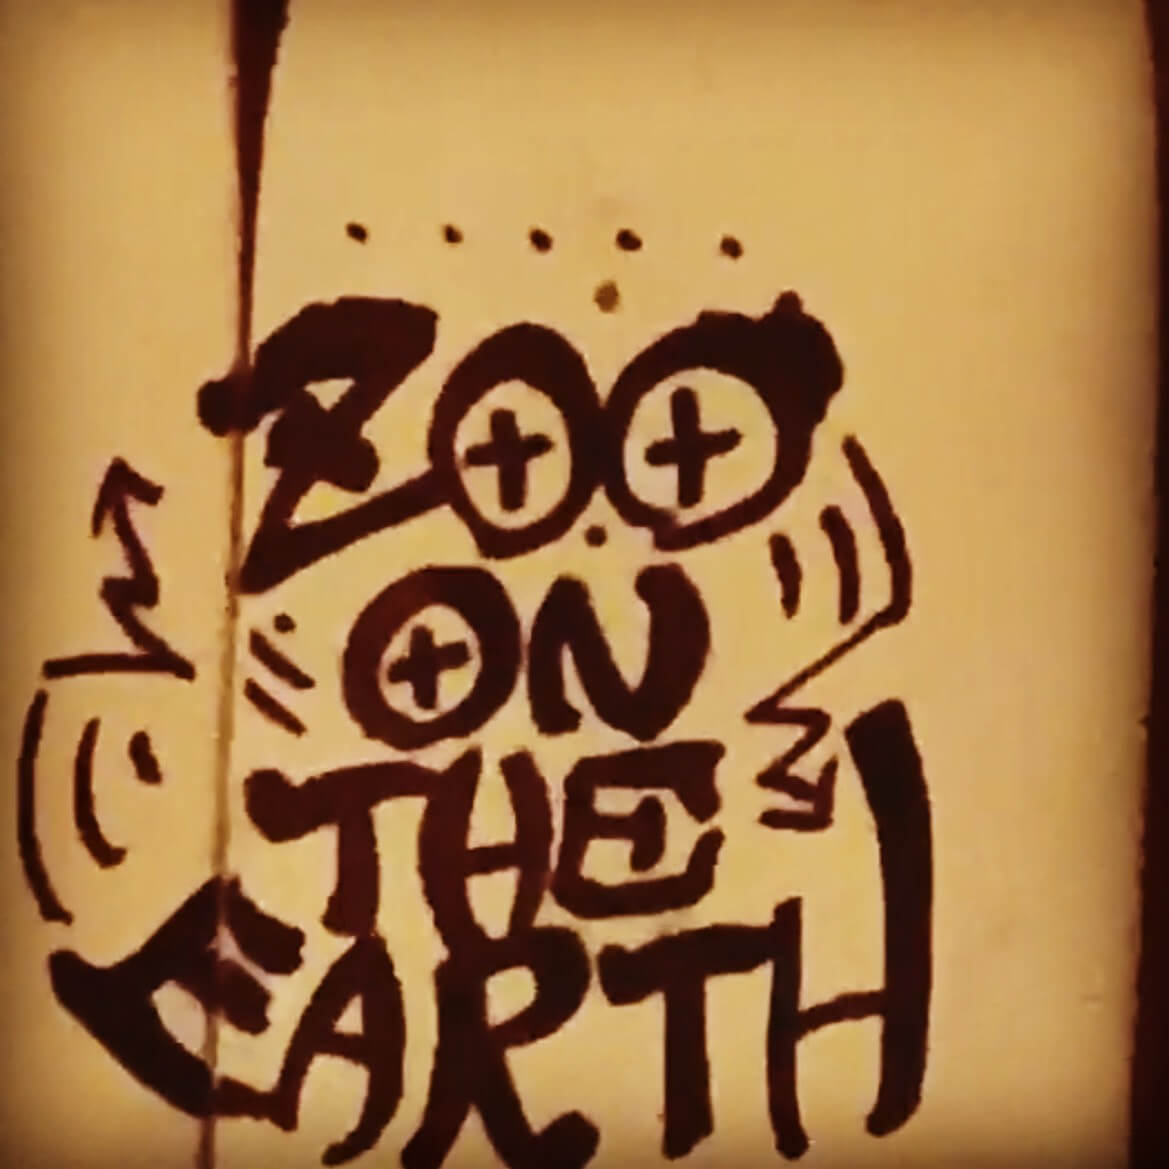 ZOO
ON
THE
EARTH